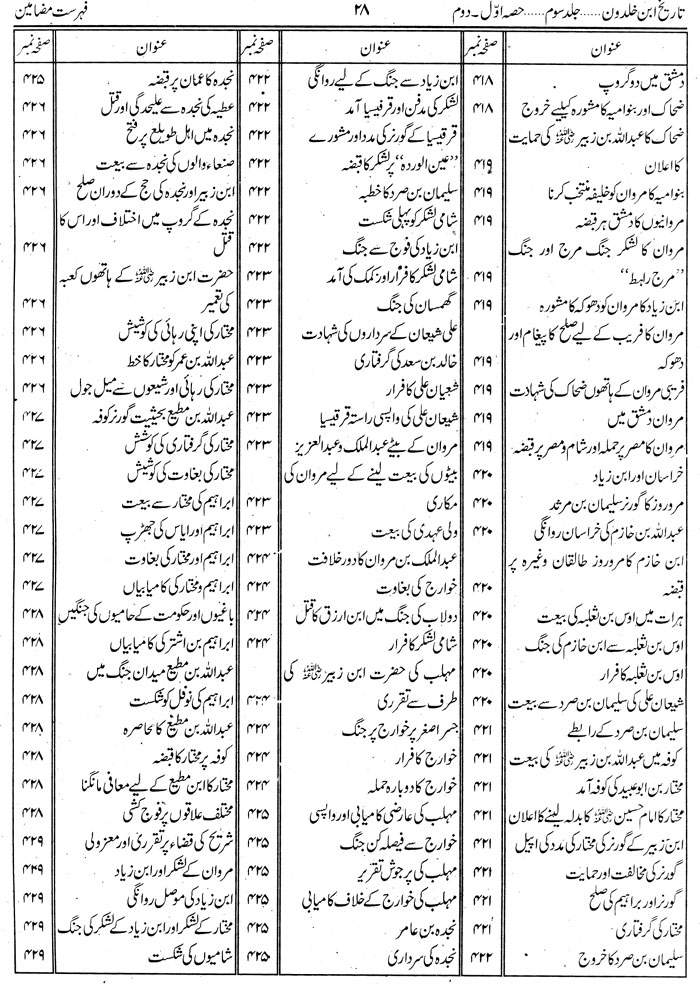 تاریخ ابن خلدون......جلد سوم......حصہ اوّل۔ دوم
۲۸
فہرست مضامین
عنوان صفحہ نمبر
دمشق میں دو گروپ ۴۱۸
ضحاک اور بنوامیہ کا مشورہ کیلیے خروج ۴۱۸
ضحاک کا عبداللہ بن زبیر ﷺ کی حمایت
کا اعلان ۴۱۹
بنوامیہ کا مروان کو خلیفہ منتخب کرنا ۴۱۹
مروانیوں کا دمشق ہر قبضہ ۴۱۹
مروان کا لشکر جنگ مرج اور جنگ
”مرج راہط“ ۴۱۹
ابن زیاد کا مروان کو دھوکہ کا مشورہ ۴۱۹
مروان کا فریب کے لیے صلح کا پیغام اور
دھوکہ ۴۱۹
فریبی مروان کے ہاتھوں ضحاک کی شہادت ۴۱۹
مروان دمشق میں ۴۱۹
مروان کا مصر پر حملہ اور شام و مصر پر قبضہ ۴۱۹
خراسان اور ابن زیاد ۴۲۰
مروروز کا گورنر سلیمان بن مرثد ۴۲۰
عبداللہ بن خازم کی خراسان روانگی ۴۲۰
ابن خازم کا مروروز طالقان وغیرہ پر
قبضہ ۴۲۰
ہرات میں اوس بن ثعلبہ کی بیعت ۴۲۰
اوس بن ثعلبہ سے ابن خازم کی جنگ ۴۲۰
اوس بن ثعلبہ کا فرار ۴۲۰
شیعان علی کی سلیمان بن صرد سے بیعت ۴۲۰
سلیمان بن صرد کے رابطے ۴۲۱
کوفہ میں عبداللہ بن زبیر ﷺ کی بیعت ۴۲۱
مختار بن ابو عبید کی کوفہ آمد ۴۲۱
مختار کا امام حسین ﷺ کا بدلہ لینے کا اعلان ۴۲۱
ابن زبیر کے گورنر کی مختار کی مدد کی اپیل ۴۲۱
گورنر کی مخالفت اور حمایت ۴۲۱
گورنر اور براہیم کی صلح ۴۲۱
مختار کی گرفتاری ۴۲۱
سلیمان بن صرد کا خروج ۴۲۲
عنوان صفحہ نمبر
ابن زیاد سے جنگ کے لیے روانگی ۴۲۲
لشکر کی مدفن اور قرقیسیا آمد ۴۲۲
قرقیسیا کے گورنر کی مدد اور مشورے ۴۲۲
”عین الوردہ“ پر لشکر کا قبضہ ۴۲۲
سلیمان بن صرد کا خطبہ ۴۲۲
شامی لشکر کو پہلی شکست ۴۲۲
ابن زیاد کی فوج سے جنگ ۴۲۲
شامی لشکر کا فرار اور کمک کی آمد ۴۲۳
گھمسان کی جنگ ۴۲۳
علی شیعان کے سرداروں کی شہادت ۴۲۳
خالد بن سعد کی گرفتاری ۴۲۳
شعیان علی کا فرار ۴۲۳
شیعان علی کی واپسی راستہ قرقیسیا ۴۲۳
مروان کے بیٹے عبدالملک و عبدالعزیز ۴۲۳
بیٹوں کی بیعت لینے کے لیے مروان کی
مکاری ۴۲۳
ولی عہدی کی بیعت ۴۲۳
عبدالملک بن مروان کا دور خلافت ۴۲۴
خوارج کی بغاوت ۴۲۴
دولاب کی جنگ میں ابن ارزق کا قتل ۴۲۴
شامی لشکر کا فرار ۴۲۴
مہلب کی حضرت ابن زبیر ﷺ کی
طرف سے تقرری ۴۲۴
جسر اصغر پر خوارج پر جنگ ۴۲۴
خوارج کا فرار ۴۲۴
خوارج کا دوبارہ حملہ ۴۲۴
مہلب کی عارضی کامیابی اور واپسی ۴۲۵
خوارج سے فیصلہ کن جنگ ۴۲۵
مہلب کی پر جوش تقریر ۴۲۵
مہلب کی خوارج کے خلاف کامیابی ۴۲۵
نجدہ بن عامر ۴۲۵
نجدہ کی سرداری ۴۲۵
عنوان صفحہ نمبر
نجدہ کا عمان پر قبضہ ۴۲۵
عطیہ کی نجدہ سے علیحدگی اور قتل ۴۲۶
نجدہ میں اہل طویلع پر فتح ۴۲۶
صنعاء والوں کی نجدہ سے بیعت ۴۲۶
ابن زبیر اور نجدہ کی حج کے دوران صلح ۴۲۶
نجدہ کے گروپ میں اختلاف اور اس کا
قتل ۴۲۶
حضرت ابن زبیر ﷺ کے ہاتھوں کعبہ
کی تعمیر ۴۲۶
مختار کی اپنی رہائی کی کوشیش ۴۲۶
عبداللہ بن عمر کو مختار کا خط ۴۲۶
مختار کی رہائی اور شیعوں سے میل جول ۴۲۶
عبداللہ بن مطیع بحیثیت گورنر کوفہ ۴۲۷
مختار کی گرفتاری کی کوشش ۴۲۷
مختار کی بغاوت کی کوشیش ۴۲۷
ابراہیم کی مختار سے بیعت ۴۲۷
ابراہیم اور ایاس کی جھڑپ ۴۲۷
ابراہیم اور مختار کی بغاوت ۴۲۷
ابراہیم و مختار کی کامیابیاں ۴۲۷
باغیوں اور حکومت کے حامیوں کی جنگیں ۴۲۸
ابراہیم بن اشتر کی کامیابیاں ۴۲۸
عبداللہ بن مطیع میدان جنگ میں ۴۲۸
ابراہیم کی نوفل کو شکست ۴۲۸
عبداللہ بن مطیع کا محاصرہ ۴۲۸
کوفہ پر مختار کا قبضہ ۴۲۸
مختار کا ابن مطیع کے لیے معافی مانگنا ۴۲۸
مختلف علاقوں پر فوج کشی ۴۲۸
شریح کی قضاء پر تقرری اور معزولی ۴۲۹
مروان کے لشکر اور ابن زیاد ۴۲۹
ابن زیاد کی موصل روانگی ۴۲۹
مختار کے لشکر اور ابن زیاد کے لشکر کی جنگ ۴۲۹
شامیوں کی شکست ۴۲۹